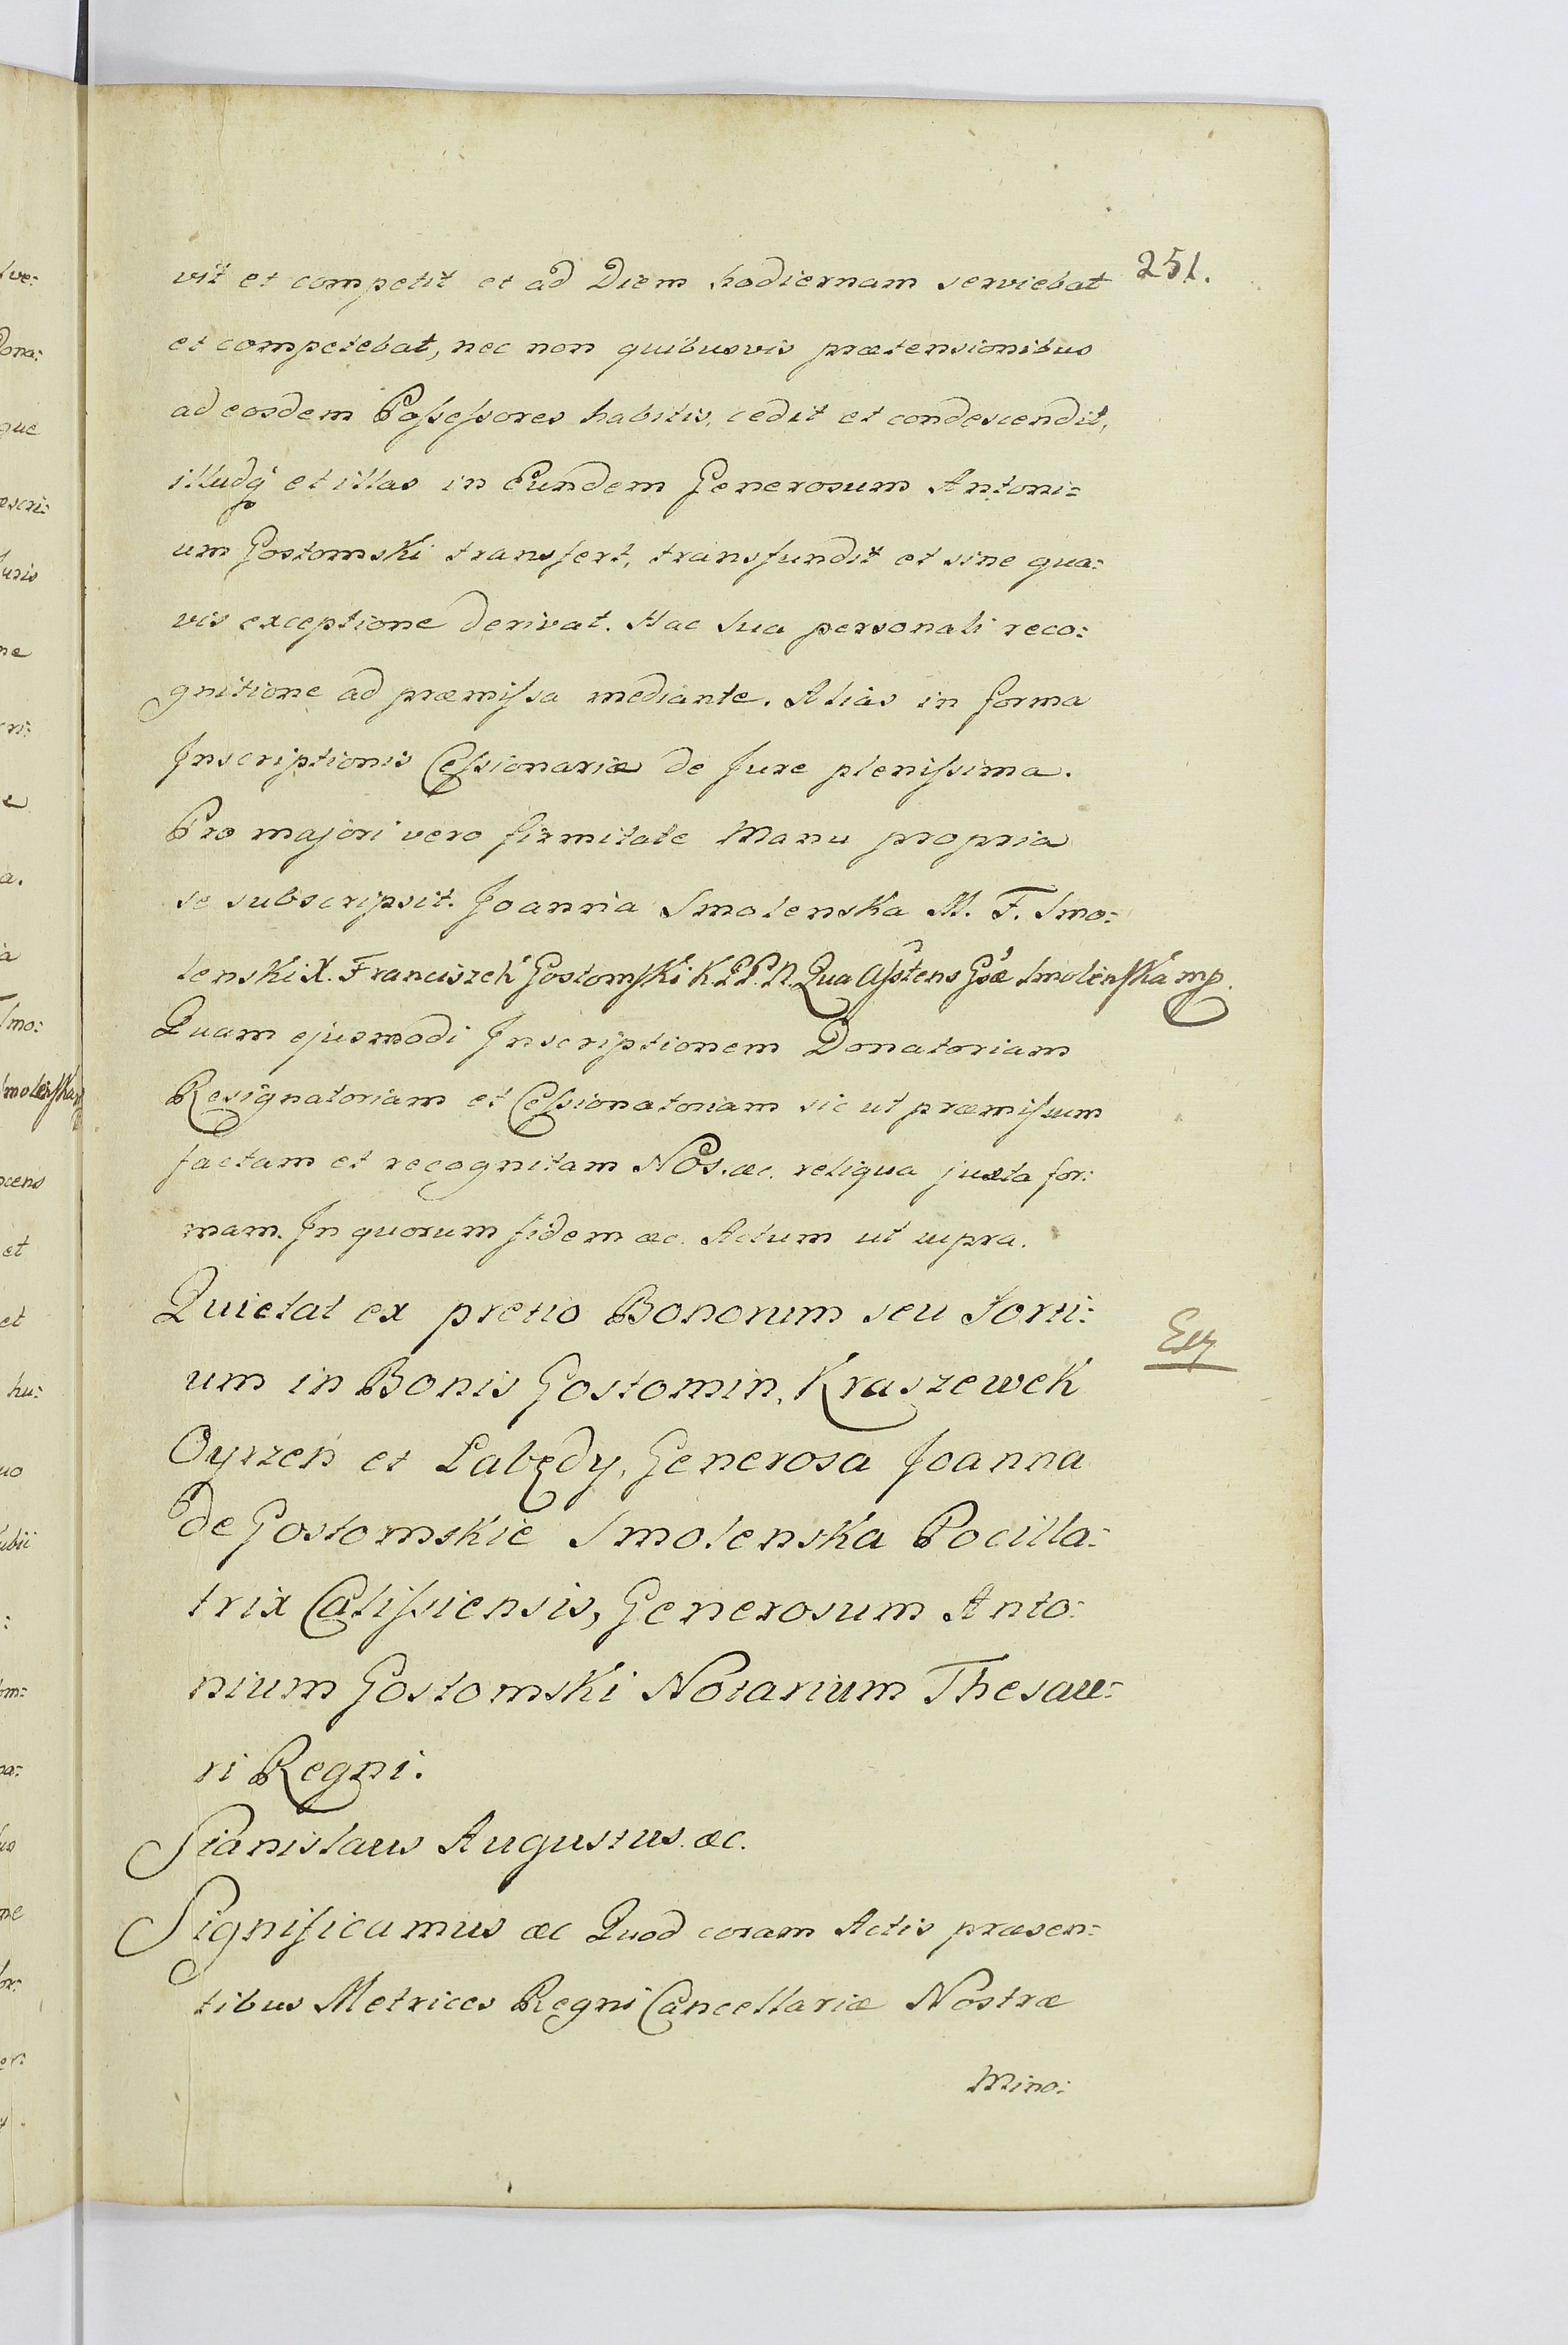 251.
vit et competit et ad Diem hodiernam serviebat
et competebat, nec non quibusvis prætensionibus
ad eosdem Poſseſsores habitis, cedit et condescendit,
illudq́ et illas in Eundem Generosum Antoni=
um Gostomski transfert, transfundit et sine qua:
vis exceptione derivat. Hac Sua personali reco:
gnitione ad præmiſsa mediante. Alias in forma
Inscriptionis Ceſsionariæ de Jure pleniſsima.
Pro majori vero firmitate Manu propria
se subscripsit. Joanna Smolenska M. F. Smo:
lenski X. Franciszek Gostomſki K.P.P.N. Qua Aſstens Gsæ Smolenſka mp.
Quam ejusmodi Inscriptionem Donatoriam
Resignatoriam et Ceſsionatoriam sic ut præmiſsum
factam et recognitam Nos. æc. reliqua juxta for:
mam. In quorum fidem æc. Actum ut supra.
Quietat ex pretio Bonorum seu Sorti:
um in Bonis Gostomin, Kraszewek
Oyrzeń et Łabędy, Generosa Joanna
de Gostomskie Smolenska Pocilla:
trix Caliſsiensis, Generosum Anto:
nium Gostomski Notarium Thesau:
ri Regni.
Stanislaus Augustus. æc.
Significamus æc Quod coram Actis præsen:
tibus Metrices Regni Cancellariæ Nostræ
Mino: